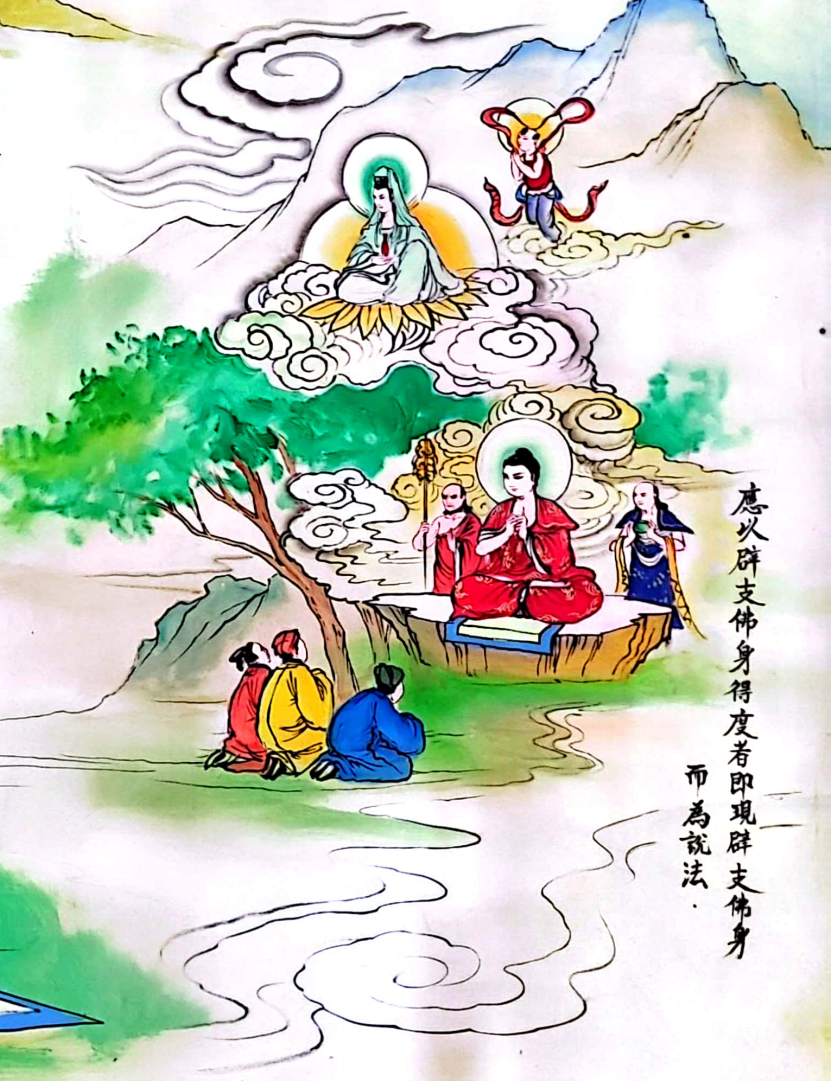 應以辟支佛身得度者即現辟支佛身
而為說法.